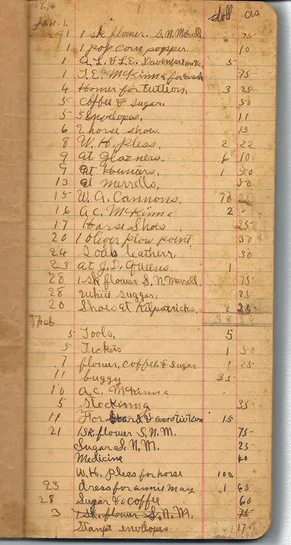 1916 doll cts
Jan. 1.
1 1 sk flower. S. N. Merrell 75
1 1 pop corn popper. 10
1 A. L. & L. E. 5
1 T. E. McKinna for 75
4 Hoomer for tuttion 3 25
5 Coffee & Sugar. 50
5 5 Envelopes. 11
6 2 horse shoes. 15
8 W. H. Pleas. 2 22
9 at Glazners. 6 10
9 at 1 50
13 at Merrells. 50
15 W. A. Cannons. 70
16 A. C. McKinna 2
17 1 Horse Shoes 25
20 1 oliver plow point. 50
26 Sole leather 30
23 at J. D. Queens 1
28 1-sk flower S. N. Merrell. 75
28 white suggar. 25
20 Shoes at Kilpatricks. 2 25
Feb
5 Tools. 5
5 Tickets 1 50
7 flower, Coffee, & Sugar 1 25
11 buggy 35
10 A. C. McKinna
5 Stocking 35
14 For & tuttion 15
21 1 sk flower S. N. M. 75
Sugar S. N. M. 25
Medicine
W. H. Pleas for horse 100
23 dress for annie may 1 65
28 Sugar & Coffee 60
3 1 sk flower S. N. M. 75
Stampt envelopes 17